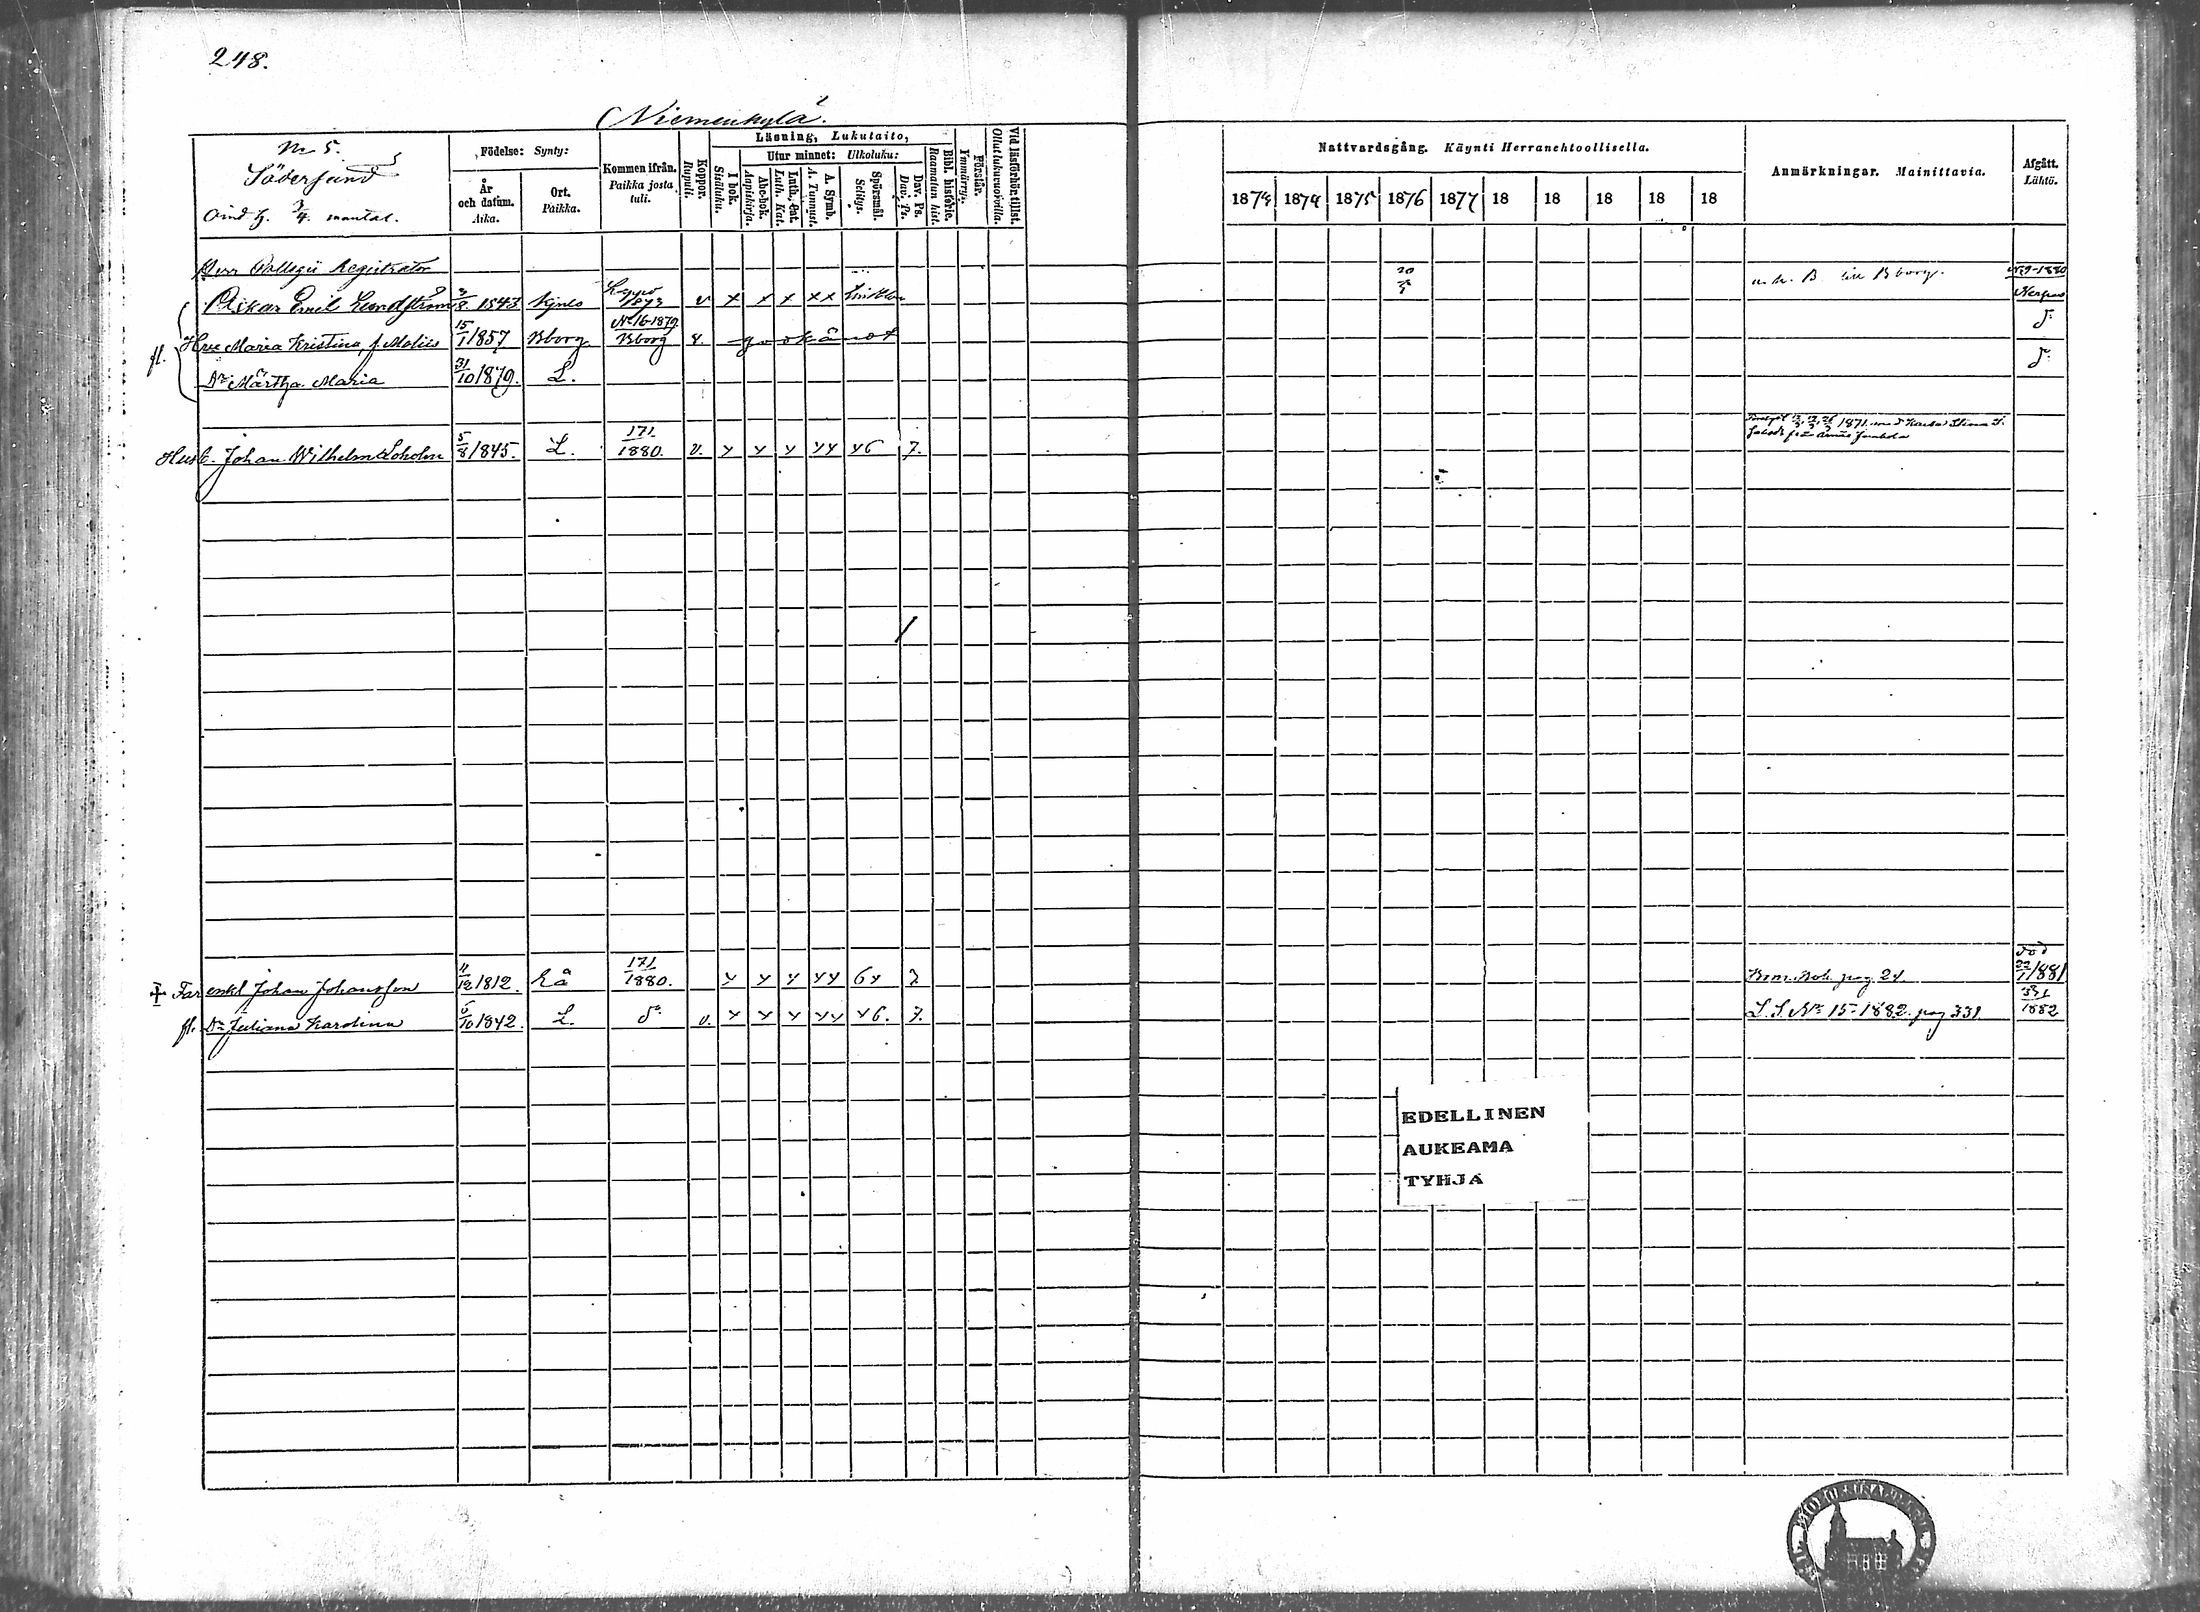 248.
Niemenkylä.
No 5.
Södersund
3/4 mantal.
Födelse: Synty:
År och datum. Aika.
Ort. Paikka.
Kommen ifrån. Paikka josta tuli.
Koppor. Rupuli.
Läsning, Lukutaito,
I bok. Sisäluku.
Utur minnet: Ulkoluku:
Abc-bok. Aapiskirja.
Luth. Cat. Luth. Kat.
A. Symb. A. Tunnust.
Spörsmål. Selitys.
Dav. Ps. Davi. Ps.
Bibl. historie. Raamatun hist.
Förstår. Ymmärrys.
Vid läsförhör tillst. Ollut lukuwuoroilla.
Nattvardsgång. Käynti Herranehtoollisella.
1874 1874 1875 1876 1877 18 18 18 18 18
Anmärkningar. Mainittavia.
Afgått. Lähtö.
Herr Collegii Registrator
Oskar Emil Lundström 3/8 1843 Agnes 1873 v x x x xx
20/5
till Bborg. No 9-1880
Hru Maria Kristina f. Molin 15/1 1857 Bborg No 16-1879 Bborg v. godkänd do
fl. Dr Märtha Maria 31/10 1879. L. do
Husb. Johan Wilhelm 5/8 1845. L. 171/1880. v. y y y yy y6 7.
1871 med
+ Far enkl Johan Johansson 11/12 1812. Eå 171/1880. y y y yy 6y 7 Kom. Bok. pag 24. död 22/1 1881
fl. Dr Juliana Karolina 5/10 1842. L. do v. y y y yy y6. 7. L. S. No 15-1882. pag 331. 331/1882
EDELLINEN
AUKEAMA
TYHJÄ